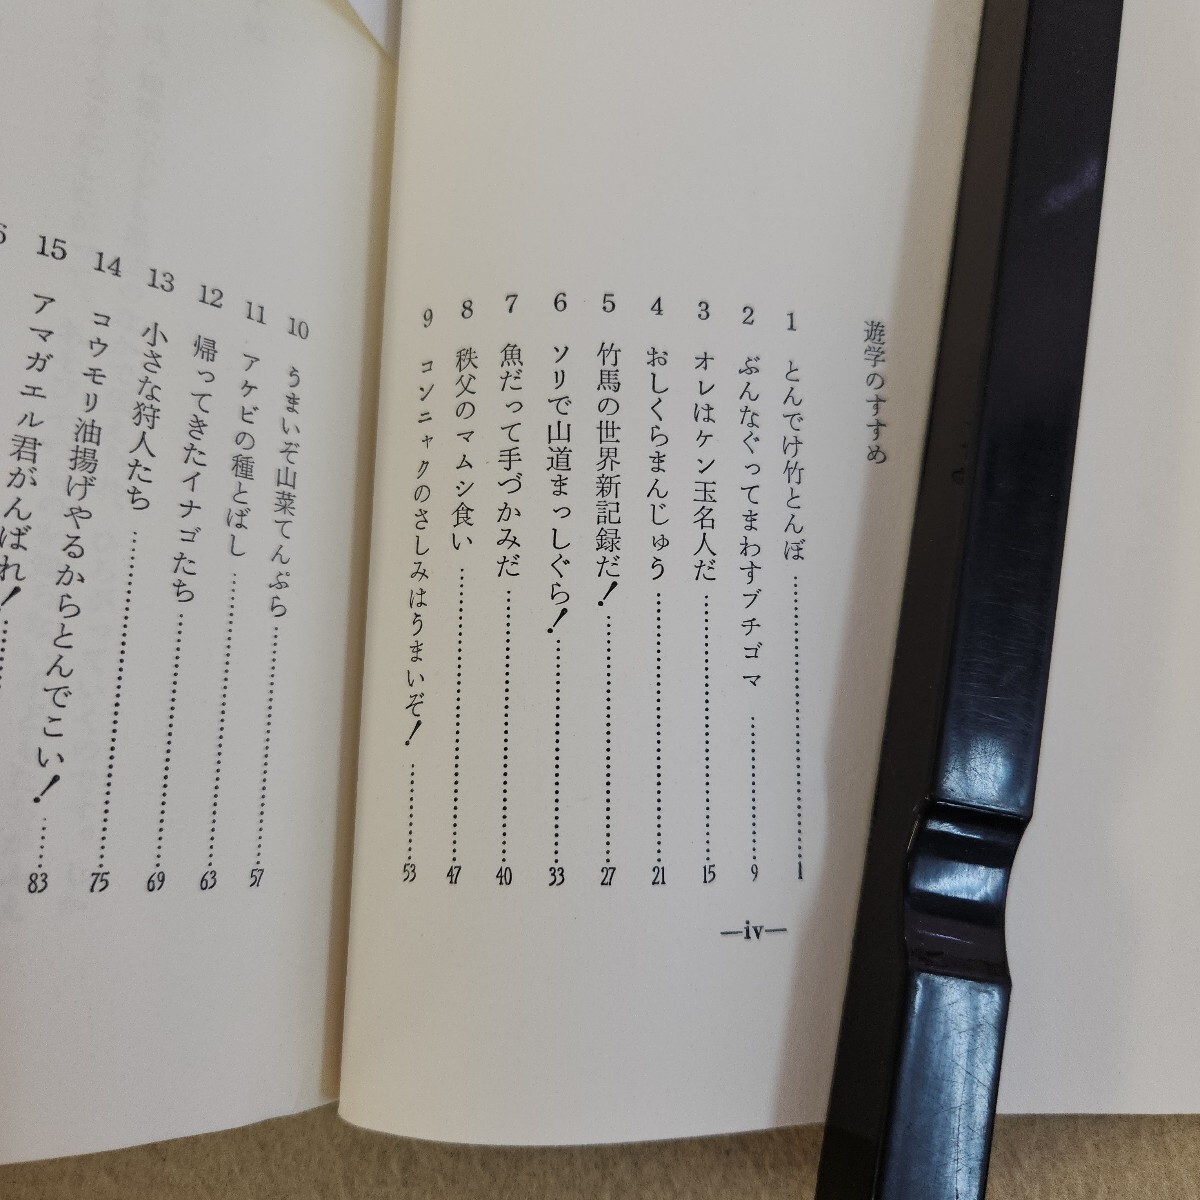 遊学のすすめ
1 とんでけ竹とんぼ……………………1
2 ぶんなぐってまわすブチゴマ……………………9
3 オレはケン玉名人だ……………………15
4 おしくらまんじゅう……………………21
5 竹馬の世界新記録だ!……………………27
6 ソリで山道まっしぐら!……………………33
7 魚だって手づかみだ……………………40
8 秩父のマムシ食い……………………47
9 コンニャクのさしみはうまいぞ!……………………53
—iv—
10 うまいぞ山菜てんぷら……………………57
11 アケビの種とばし……………………63
12 帰ってきたイナゴたち……………………69
13 小さな狩人たち……………………75
14 コウモリ油揚げやるからとんでこい!……………………83
15 アマガエル君がんばれ!